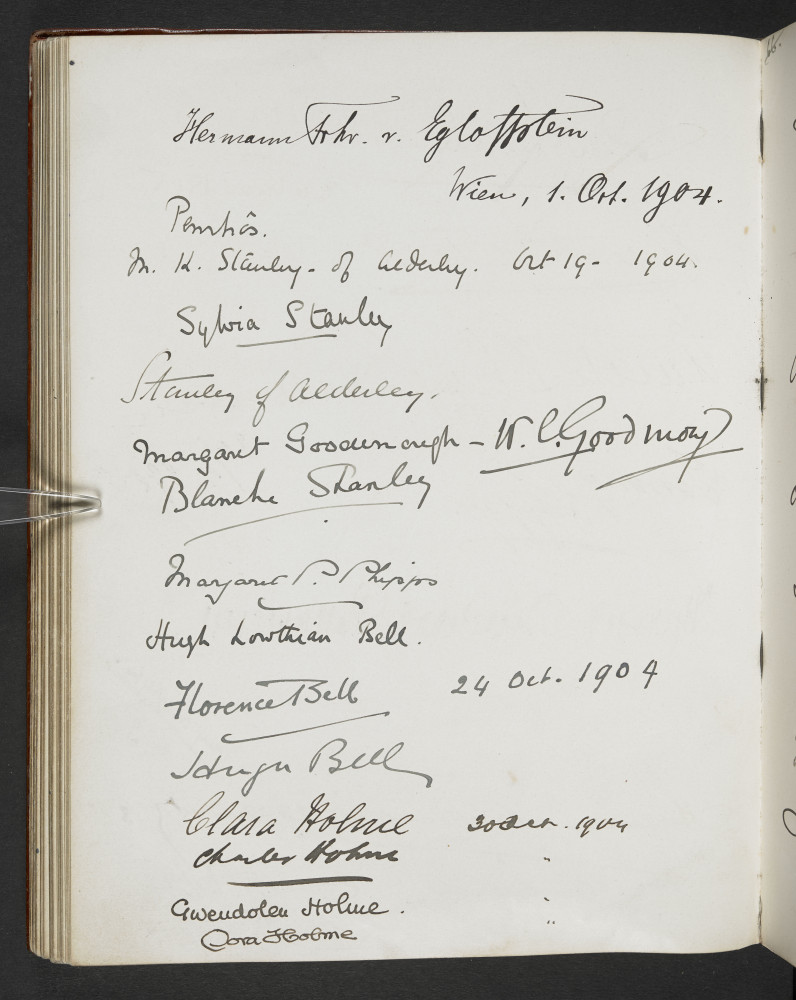 Hermann Frhr. v. Egloffstein
Wien, 1. Oct. 1904.
Penrhôs.
M. K. Stanley - of Alderley. Oct 19 - 1904.
Sylvia Stanley
Stanley of Alderley.
Margaret Goodenough - W. C. Goodenough
Blanche Stanley
Margaret P. Phipps
Hugh Lowthian Bell.
Florence Bell 24 Oct. 1904
Hugh Bell
Clara Holme 30 Oct. 1904
Charles Holme "
Gwendolen Holme. "
Cora Holme